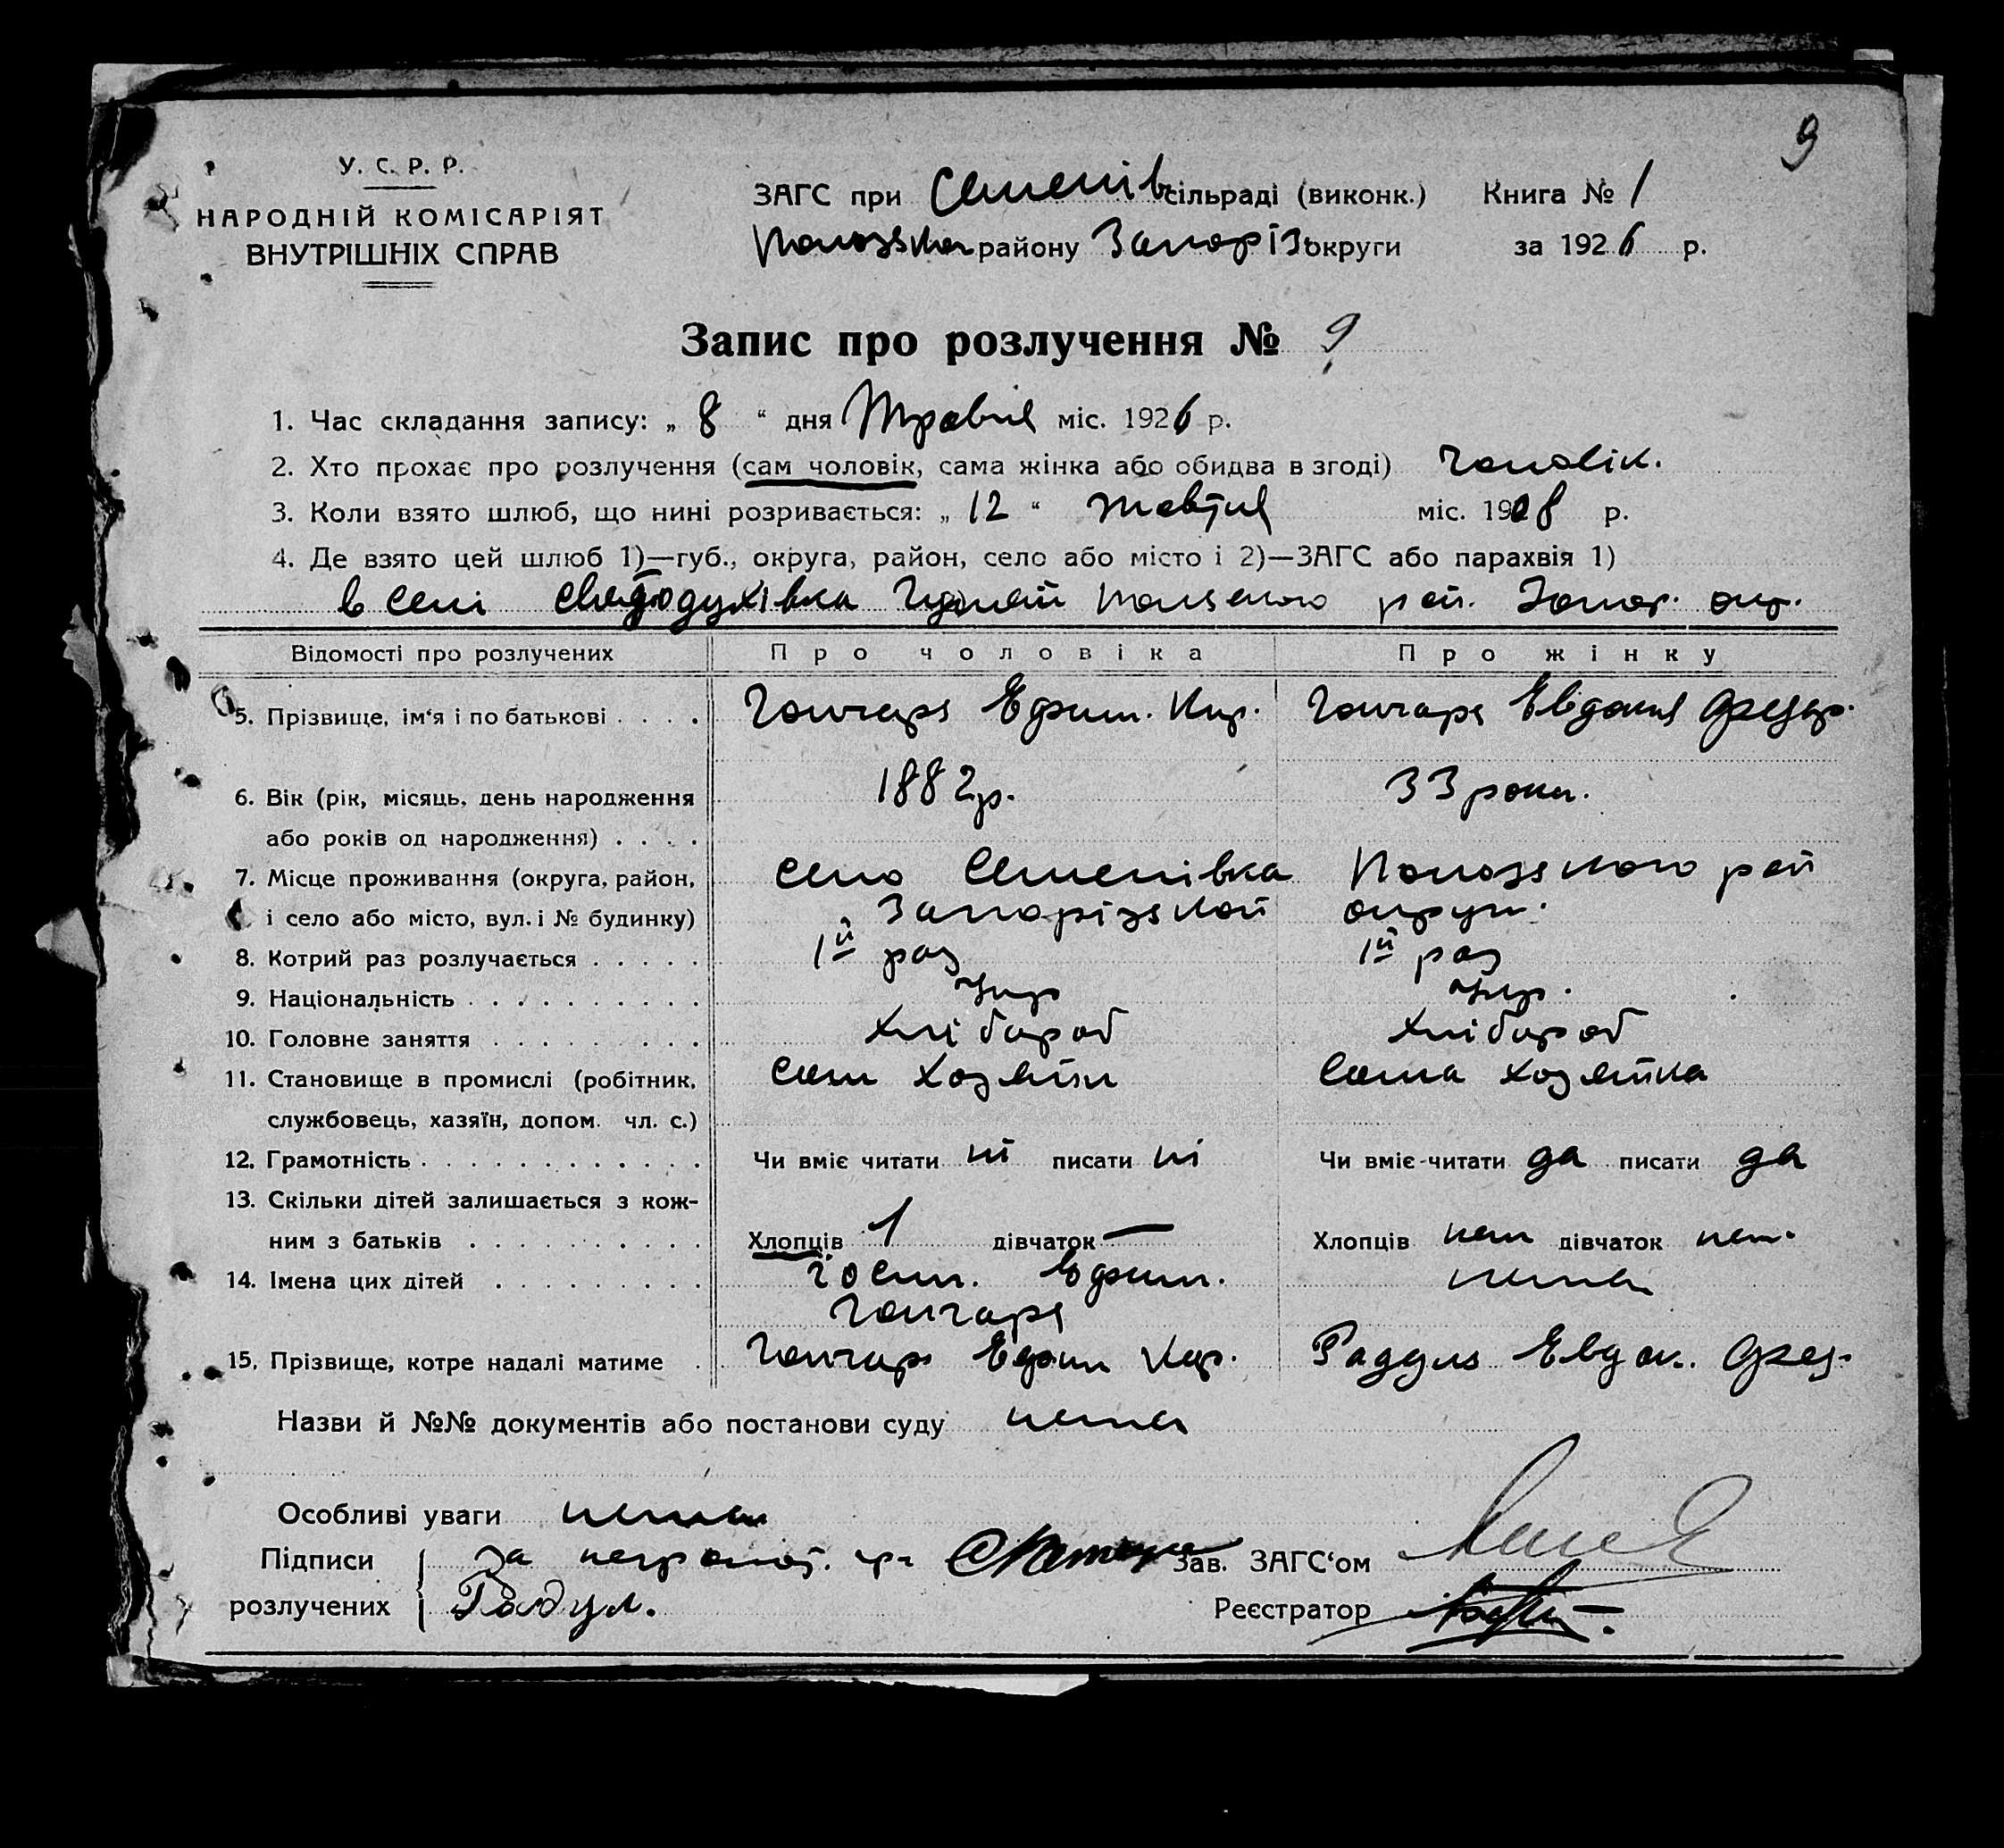 9
У. С. Р. Р.
НАРОДНІЙ КОМІСАРІЯТ
ВНУТРІШНІХ СПРАВ
ЗАГС при Семенів сільраді (виконк.) Книга № 1
району Запоріз округи за 1926 р.
Запис про розлучення № 9
1. Час складання запису: „ 8 “ дня Травня міс. 1926 р.
2. Хто прохає про розлучення (сам чоловік, сама жінка або обидва в згоді) чоловік.
3. Коли взято шлюб, що нині розривається: „ 12 “ міс. 1908 р.
4. Де взято цей шлюб 1)—губ., округа, район, село або місто і 2)—ЗАГС або парахвія 1)
в селі Святодухівка рай. Запор. окр.
Відомості про розлучених Про чоловіка Про жінку
5. Прізвище, ім‘я і по батькові . . . . Гончарь Ефим. Кир. Гончарь Евдокия Федор.
6. Вік (рік, місяць, день народження 1882 р. 33 роки.
або років од народження) . . . .
7. Місце проживання (округа, район, село Семенівка Пологзского рай
і село або місто, вул. і № будинку) Запорізской округи.
8. Котрий раз розлучається . . . . . 1й раз 1й раз
9. Національність . . . . . . . . . . Укр Укр.
10. Головне заняття . . . . . . . . . Хлібороб Хлібороб
11. Становище в промислі (робітник, Сам Хозяїн Сама Хозяїка
службовець, хазяїн, допом. чл. с.)
12. Грамотність . . . . . . . . . . . . Чи вміє читати ні писати ні Чи вміє читати да писати да
13. Скільки дітей залишається з кож-
ним з батьків . . . . . . . . . . Хлопців 1 дівчаток — Хлопців нет дівчаток нет.
14. Імена цих дітей . . . . . . . . . Ефим. нема
Гончарь
15. Прізвище, котре надалі матиме . Гончарь Ефим Кир. Раддул Евдок. Фед.
Назви й №№ документів або постанови суду нема
Особливі уваги нема
Підписи За неграмот. Зав. ЗАГС‘ом
розлучених Радул. Реєстратор